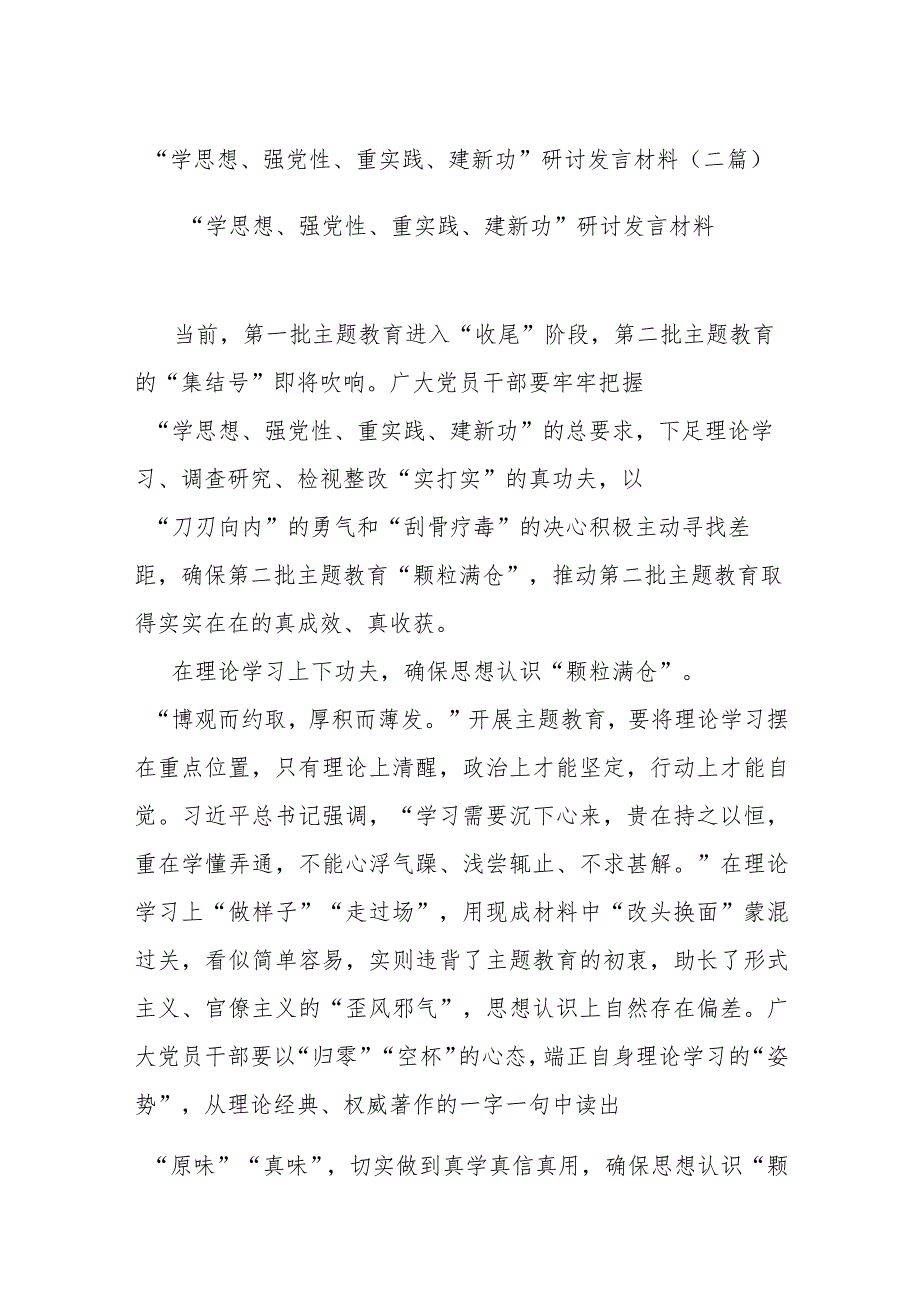 “学思想、强党性、重实践、建新功”研讨发言材料（二篇）
“学思想、强党性、重实践、建新功”研讨发言材料
当前，第一批主题教育进入“收尾”阶段，第二批主题教育
的“集结号”即将吹响。广大党员干部要牢牢把握
“学思想、强党性、重实践、建新功”的总要求，下足理论学
习、调查研究、检视整改“实打实”的真功夫，以
“刀刃向内”的勇气和“刮骨疗毒”的决心积极主动寻找差
距，确保第二批主题教育“颗粒满仓”，推动第二批主题教育取
得实实在在的真成效、真收获。
在理论学习上下功夫，确保思想认识“颗粒满仓”。
“博观而约取，厚积而薄发。”开展主题教育，要将理论学习摆
在重点位置，只有理论上清醒，政治上才能坚定，行动上才能自
觉。习近平总书记强调，“学习需要沉下心来，贵在持之以恒，
重在学懂弄通，不能心浮气躁、浅尝辄止、不求甚解。”在理论
学习上“做样子”“走过场”，用现成材料中“改头换面”蒙混
过关，看似简单容易，实则违背了主题教育的初衷，助长了形式
主义、官僚主义的“歪风邪气”，思想认识上自然存在偏差。广
大党员干部要以“归零”“空杯”的心态，端正自身理论学习的“姿
势”，从理论经典、权威著作的一字一句中读出
“原味”“真味”，切实做到真学真信真用，确保思想认识“颗